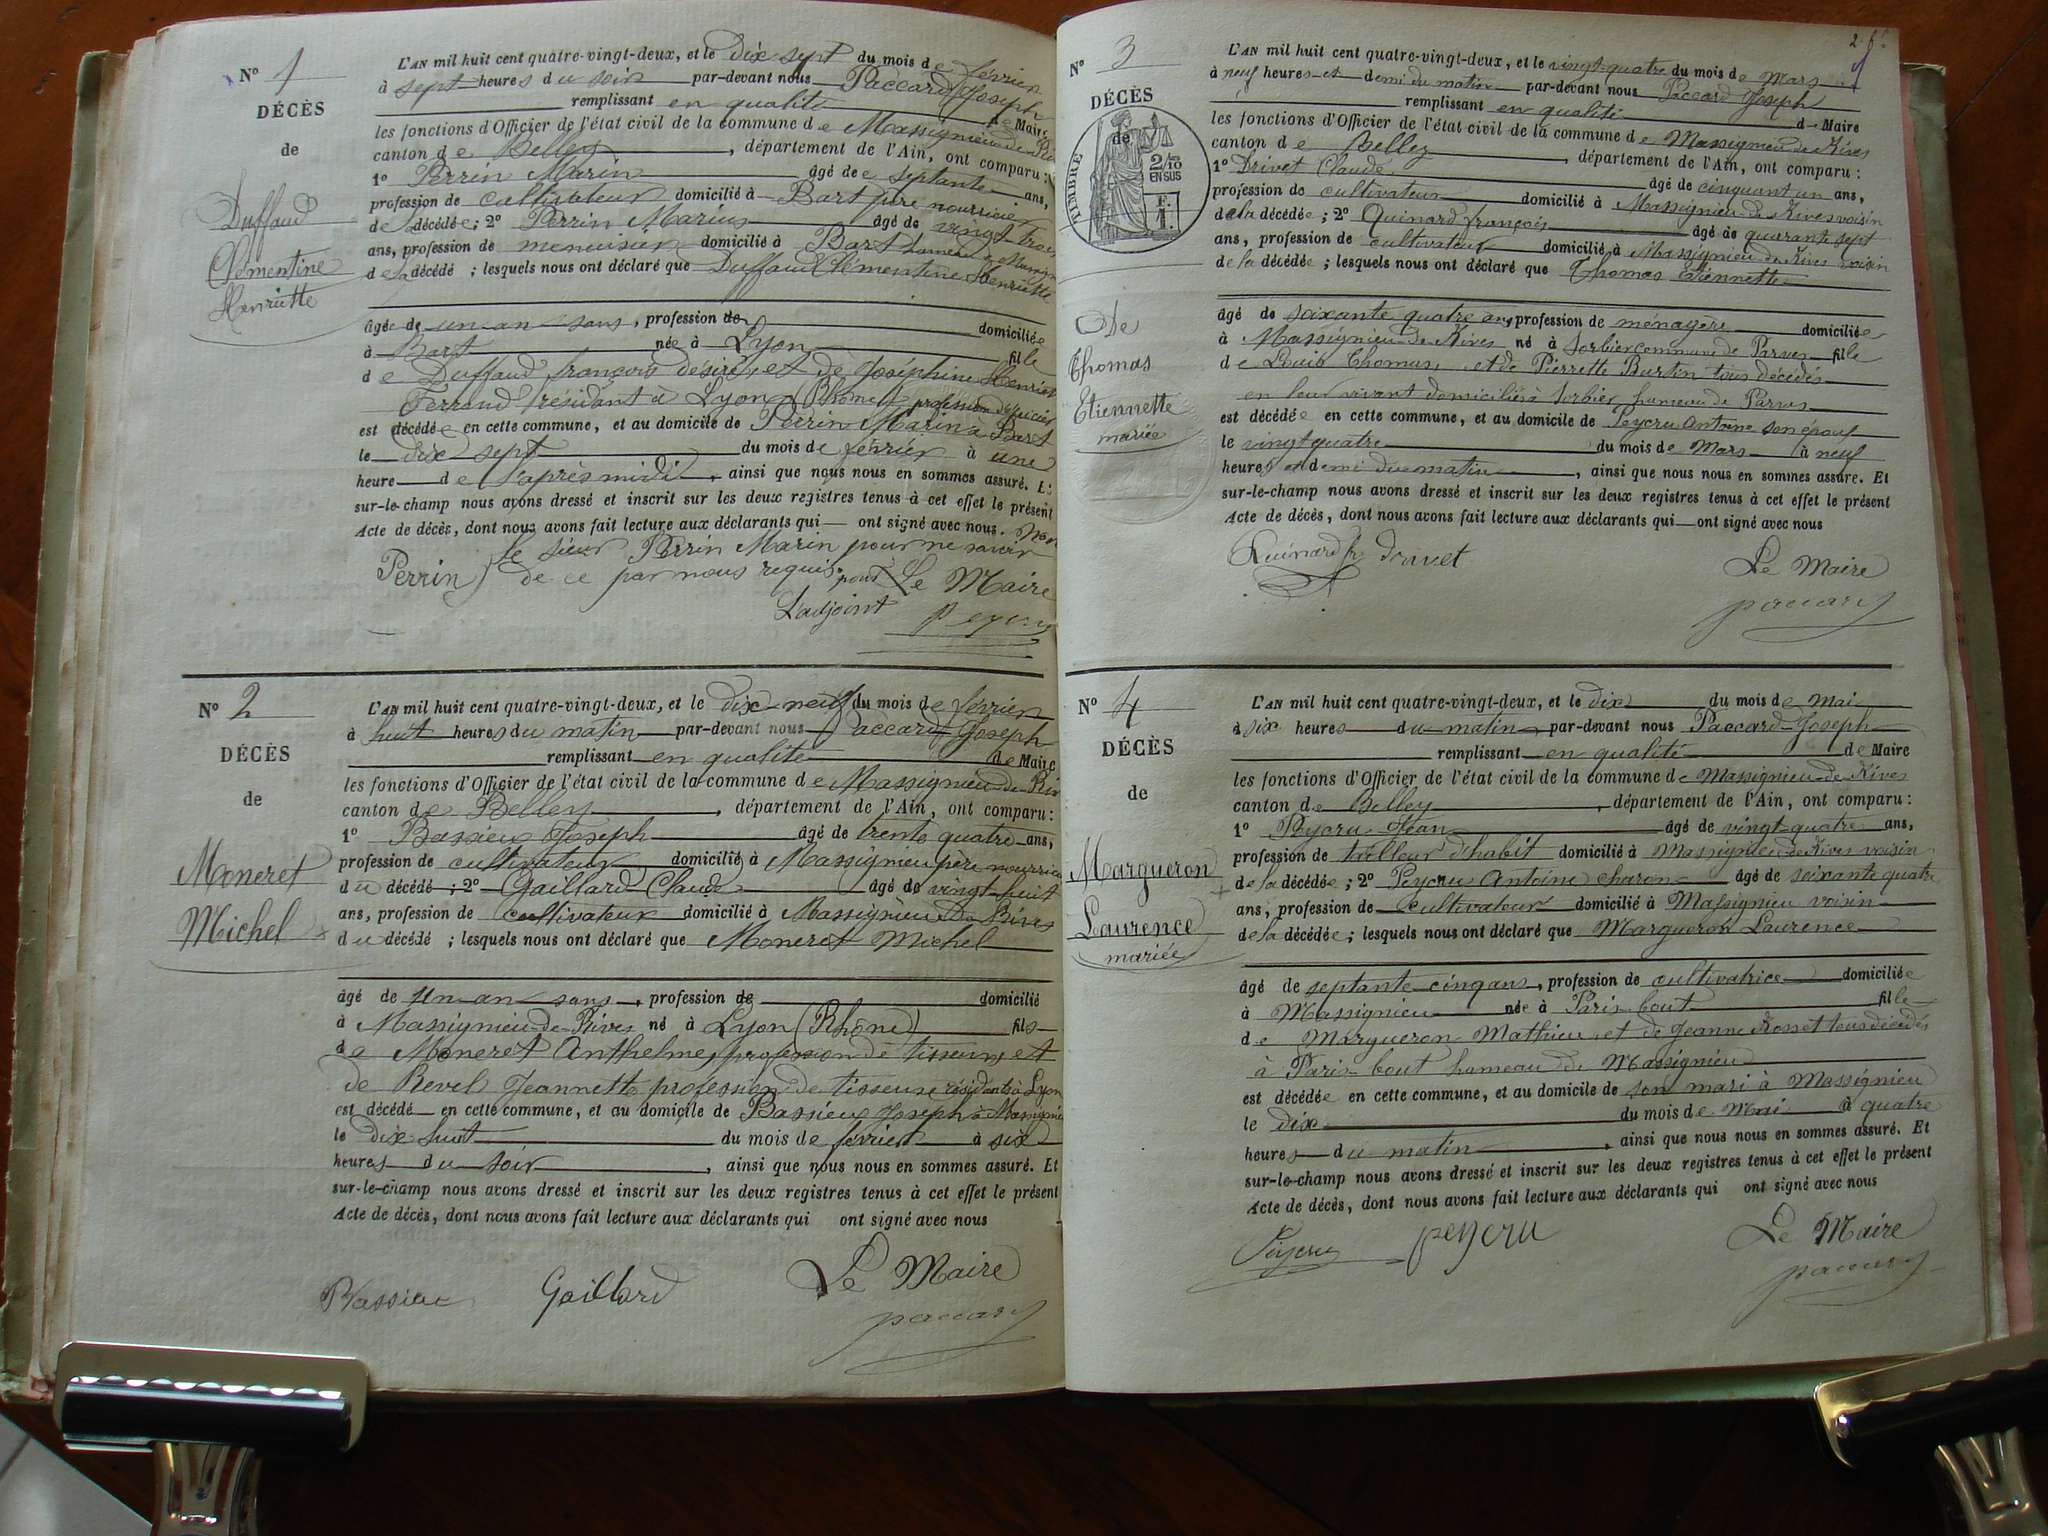 N° 1
DÉCÈS
de
Duffaud
Clémentine
Henriette
L'AN mil huit cent quatre-vingt-deux, et le Dix sept du mois de février
à sept heures du soir par-devant nous Paccard Joseph
remplissant en qualité de Maire
les fonctions d'Officier de l'état civil de la commune de Massignieu de Ri
canton de Belley, département de l'Ain, ont comparu :
1° Perrin Marin âgé de septante ans,
profession de cultivateur domicilié à Bart père nourricier
de la décédée ; 2° Perrin Marius âgé de vingt trois
ans, profession de menuisier domicilié à Bart hameau de Massign
de la décédé ; lesquels nous ont déclaré que Duffaud Clémentine Henriette
âgée de un an sans, profession de domiciliée
à Bart née à Lyon fille
de Duffaud françois désiré, et de Joséphine Henriet
Ferrand résidant à Lyon (Rhône) profession d'épiciers
est décédée en cette commune, et au domicile de Perrin Marin à Bart
le dix sept du mois de février à une
heure de l'après midi, ainsi que nous nous en sommes assuré. Et
sur-le-champ nous avons dressé et inscrit sur les deux registres tenus à cet effet le présent
Acte de décès, dont nous avons fait lecture aux déclarants qui ont signé avec nous. Non
le sieur Perrin Marin pour ne savoir
Perrin de ce par nous requis. pour Le Maire
L'adjoint Peycru
N° 2
DÉCÈS
de
Moneret
Michel
L'AN mil huit cent quatre-vingt-deux, et le Dix-neuf du mois de février
à huit heures du matin par-devant nous Paccard Joseph
remplissant en qualité de Maire
les fonctions d'Officier de l'état civil de la commune de Massignieu de Riv
canton de Belley, département de l'Ain, ont comparu :
1° Bassieu Joseph âgé de trente quatre ans,
profession de cultivateur domicilié à Massignieu père nourricie
du décédé ; 2° Gaillard Claude âgé de vingt huit
ans, profession de cultivateur domicilié à Massignieu de Rives
du décédé ; lesquels nous ont déclaré que Moneret Michel
âgé de un an sans, profession de domicilié
à Massignieu de Rives né à Lyon (Rhône) fils
de Moneret Anthelme, profession de tisseur, et
de Revel Jeannette profession de tisseuse résidants à Lyon
est décédé en cette commune, et au domicile de Bassieu Joseph à Massignie
le Dix huit du mois de février à six
heures du soir, ainsi que nous nous en sommes assuré. Et
sur-le-champ nous avons dressé et inscrit sur les deux registres tenus à cet effet le présent
Acte de décès, dont nous avons fait lecture aux déclarants qui ont signé avec nous
Bassieu Gaillard Le Maire
paccard
2. f.
N° 3
DÉCÈS
de
TIMBRE
2/10
EN SUS
F.
1.
De
Thomas
Etiennette
mariée
L'AN mil huit cent quatre-vingt-deux, et le vingt quatre du mois de Mars
à neuf heures et demi du matin par-devant nous Paccard Joseph
remplissant en qualité de Maire
les fonctions d'Officier de l'état civil de la commune de Massignieu de Rives
canton de Belley, département de l'Ain, ont comparu :
1° Drivet Claude âgé de cinquant un ans,
profession de cultivateur domicilié à Massignieu de Rives voisin
de la décédée ; 2° Quinard françois âgé de quarante sept
ans, profession de cultivateur domicilié à Massignieu de Rives voisin
de la décédée ; lesquels nous ont déclaré que Thomas Etiennette
âgé de soixante quatre ans, profession de ménagère domiciliée
à Massignieu de Rives né à Sorbier commune de Parves fille
de Louis Thomas, et de Pierrette Burtin tous décédés
en leur vivant domiciliés à Sorbier hameau de Parves
est décédée en cette commune, et au domicile de Peycru Antoine son époux
le vingt quatre du mois de Mars à neuf
heures et demi du matin, ainsi que nous nous en sommes assuré. Et
sur-le-champ nous avons dressé et inscrit sur les deux registres tenus à cet effet le présent
Acte de décès, dont nous avons fait lecture aux déclarants qui ont signé avec nous
Quinard fr dravet Le Maire
paccard
N° 4
DÉCÈS
de
Margueron
Laurence
mariée
L'AN mil huit cent quatre-vingt-deux, et le dix du mois de Mai
à six heures du matin par-devant nous Paccard Joseph
remplissant en qualité de Maire
les fonctions d'Officier de l'état civil de la commune de Massignieu de Rives
canton de Belley, département de l'Ain, ont comparu :
1° Peycru Jean âgé de vingt quatre ans,
profession de tailleur d'habit domicilié à Massignieu de Rives voisin
de la décédée ; 2° Peycru Antoine charon âgé de soixante quatre
ans, profession de cultivateur domicilié à Massignieu voisin
de la décédée ; lesquels nous ont déclaré que Margueron Laurence
âgé de septante cinq ans, profession de cultivatrice domiciliée
à Massignieu née à Paris-bout fille
de Margueron Mathieu et de Jeanne Rosset tous décédés
à Paris-bout hameau de Massignieu
est décédée en cette commune, et au domicile de son mari à Massignieu
le dix du mois de Mai à quatre
heures du matin, ainsi que nous nous en sommes assuré. Et
sur-le-champ nous avons dressé et inscrit sur les deux registres tenus à cet effet le présent
Acte de décès, dont nous avons fait lecture aux déclarants qui ont signé avec nous
Peycru peycru Le Maire
paccard